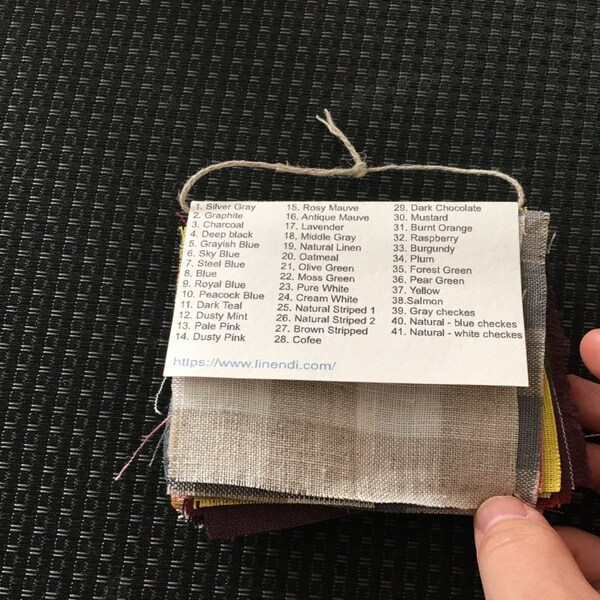 1. Silver Gray
2. Graphite
3. Charcoal
4. Deep black
5. Grayish Blue
6. Sky Blue
7. Steel Blue
8. Blue
9. Royal Blue
10. Peacock Blue
11. Dark Teal
12. Dusty Mint
13. Pale Pink
14. Dusty Pink
15. Rosy Mauve
16. Antique Mauve
17. Lavender
18. Middle Gray
19. Natural Linen
20. Oatmeal
21. Olive Green
22. Moss Green
23. Pure White
24. Cream White
25. Natural Striped 1
26. Natural Striped 2
27. Brown Stripped
28. Cofee
29. Dark Chocolate
30. Mustard
31. Burnt Orange
32. Raspberry
33. Burgundy
34. Plum
35. Forest Green
36. Pear Green
37. Yellow
38.Salmon
39. Gray checkes
40. Natural - blue checkes
41. Natural - white checkes
https://www.linendi.com/